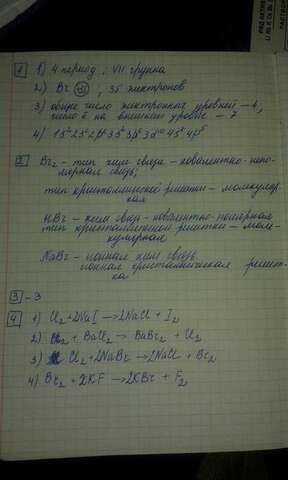 1 1) 4 период, VII группа
2) Br +35, 35 электронов
3) общее число электронных уровней – 4,
число ē на внешнем уровне – 7
4) 1s² 2s² 2p⁶ 3s² 3p⁶ 3d¹⁰ 4s² 4p⁵
2 Br₂ – тип хим связи – ковалентно-непо-
лярная связь;
тип кристаллической решетки – молекуляр-
ная
HBr – хим связь – ковалентно-полярная
тип кристаллической решетки – моле-
кулярная
NaBr – ионная хим связь
ионная кристаллическая решет-
ка
3 – 3
4 1) Cl₂ + 2NaI → 2NaCl + I₂
2) + BaCl₂ → BaBr₂ + Cl₂
3) Cl₂ + 2NaBr → 2NaCl + Br₂
4) Br₂ + 2KF → 2KBr + F₂